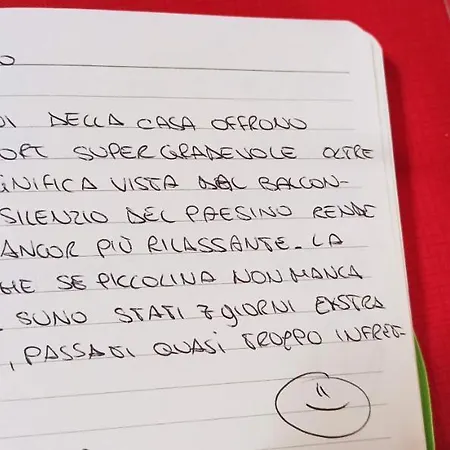 O
DI DELLA CASA OFFRONO
ORT SUPERGRADEVOLE OLTRE
GNIFICA VISTA DAL BALCON-
SILENZIO DEL PAESINO RENDE
ANCOR PIÙ RILASSANTE. LA
HE SE PICCOLINA NON MANCA
. SUNO STATI 7 GIORNI EXSTRA
, PASSATI QUASI TROPPO INFRET-